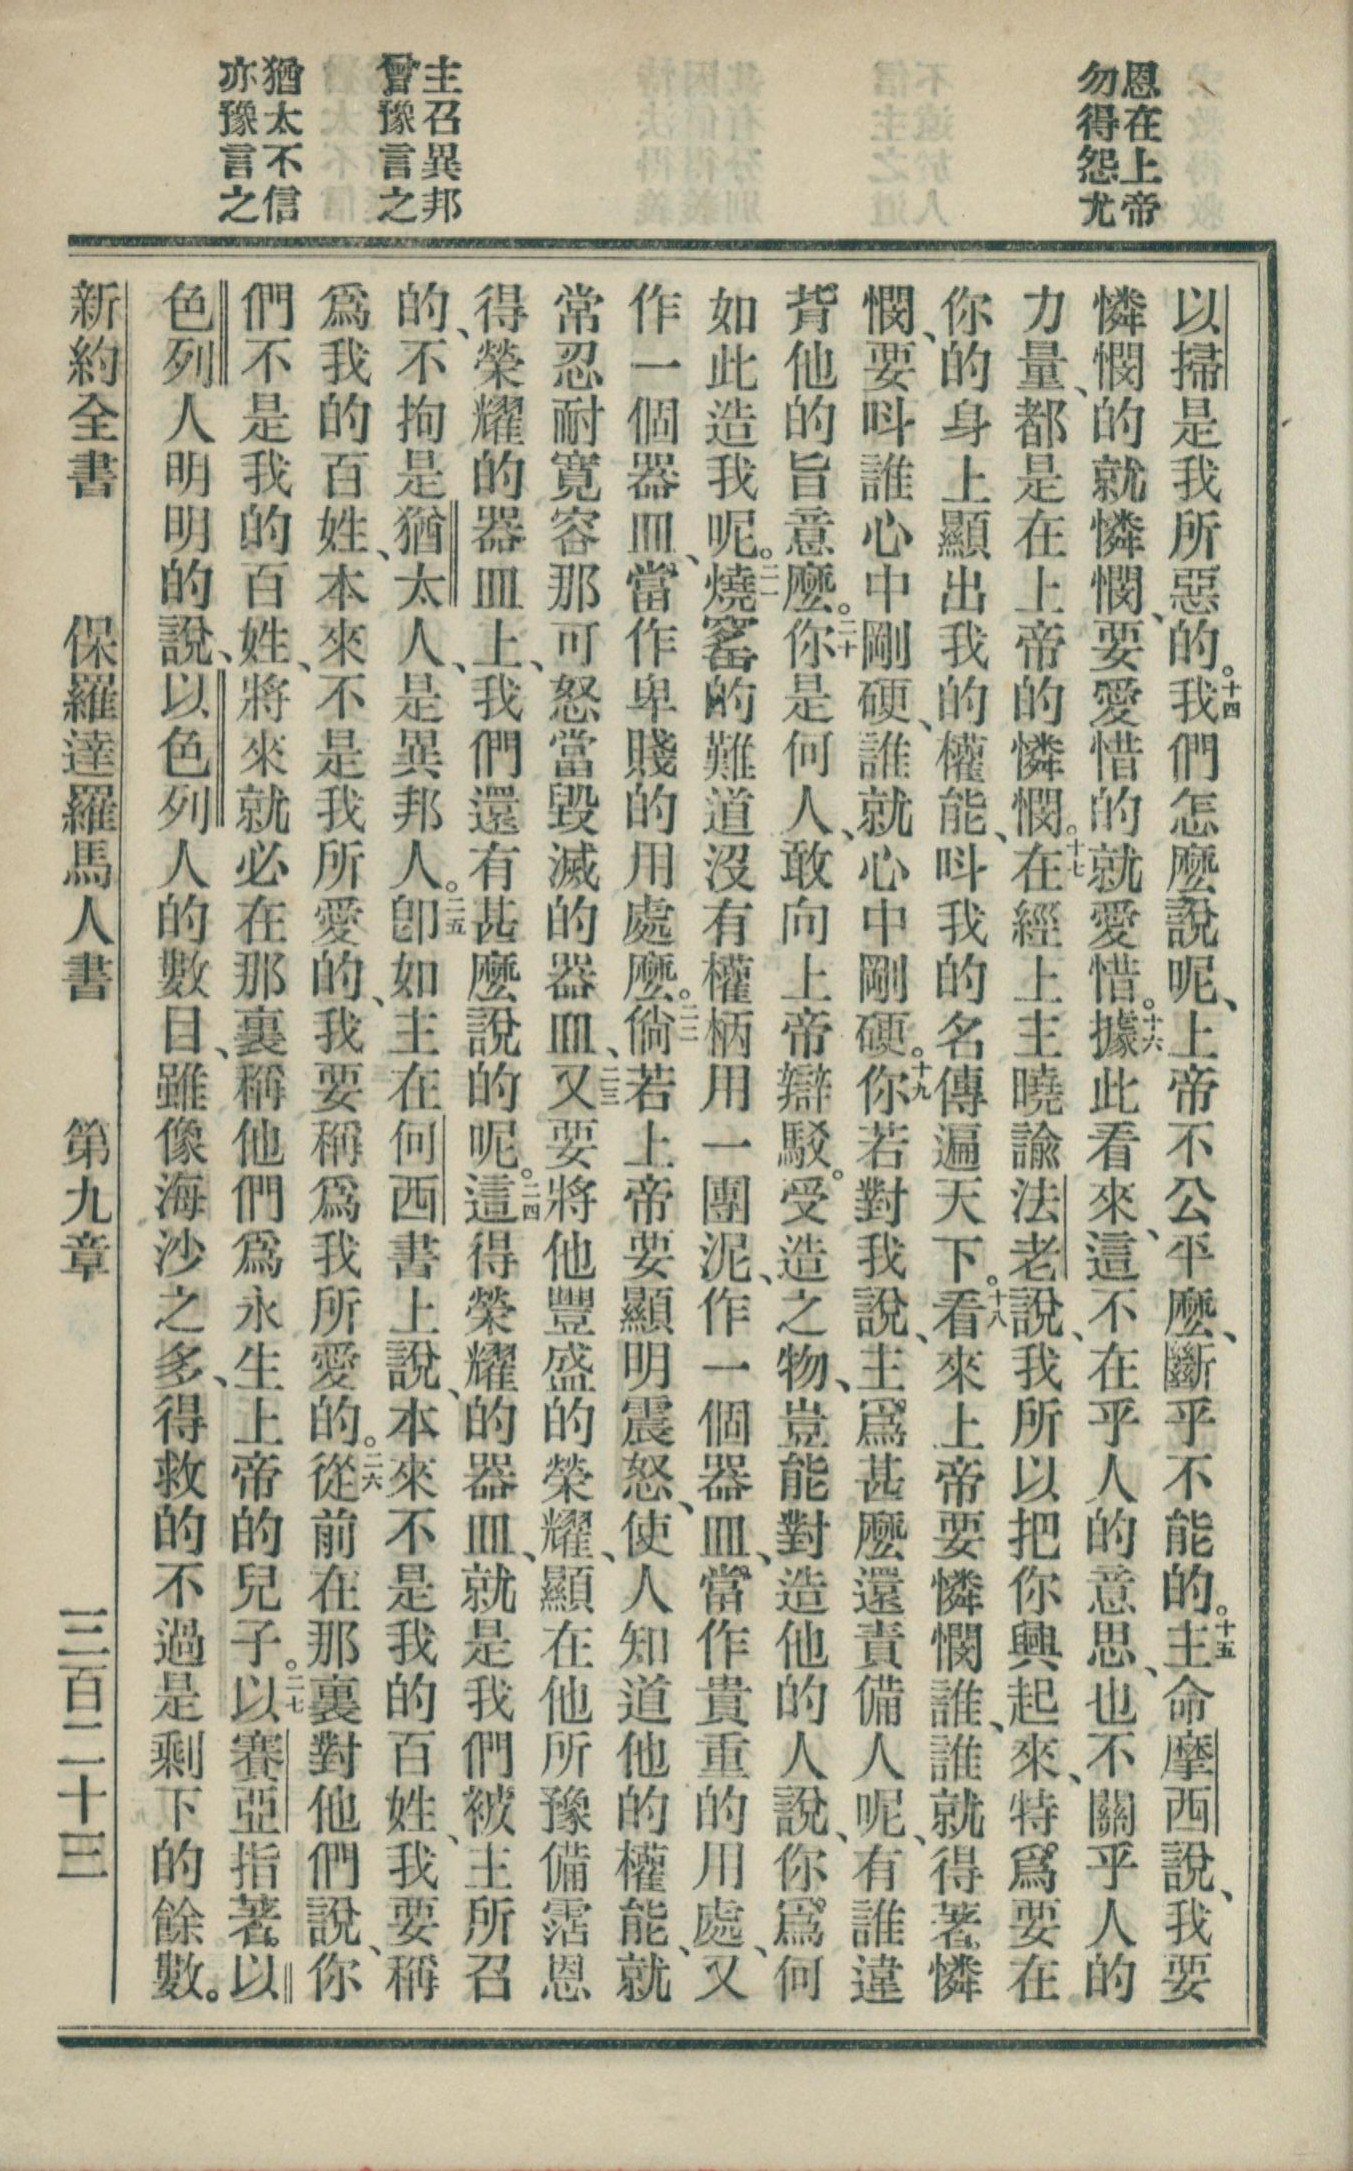 恩在上帝
勿得怨尤
主召異邦
曾豫言之
猶太不信
亦豫言之
以掃是我所惡的。十四我們怎麽說呢、上帝不公平麽、斷乎不能的。十五主命摩西說、我要
憐憫的就憐憫、要愛惜的就愛惜。十六據此看來、這不在乎人的意思、也不關乎人的
力量、都是在上帝的憐憫。十七在經上主曉諭法老說、我所以把你興起來、特爲要在
你的身上顯出我的權能、呌我的名傳遍天下。十八看來上帝要憐憫誰、誰就得著憐
憫、要呌誰心中剛硬、誰就心中剛硬。十九你若對我說、主爲甚麽還責備人呢、有誰違
背他的旨意麽。二十你是何人、敢向上帝辯駁。受造之物、豈能對造他的人說、你爲何
如此造我呢。二一燒窰的難道沒有權柄用一團泥、作一個器皿、當作貴重的用處、又
作一個器皿、當作卑賤的用處麽。二二倘若上帝要顯明震怒、使人知道他的權能、就
常忍耐寬容那可怒當毀滅的器皿、二三又要將他豐盛的榮耀、顯在他所豫備霑恩
得榮耀的器皿上、我們還有甚麽說的呢。二四這得榮耀的器皿、就是我們被主所召
的、不拘是猶太人、是異邦人。二五卽如主在何西書上說、本來不是我的百姓、我要稱
爲我的百姓、本來不是我所愛的、我要稱爲我所愛的。二六從前在那裏對他們說、你
們不是我的百姓、將來就必在那裏稱他們爲永生上帝的兒子。二七以賽亞指著以
色列人明明的說、以色列人的數目、雖像海沙之多、得救的不過是剩下的餘數。
新約全書　保羅達羅馬人書　第九章　三百二十三